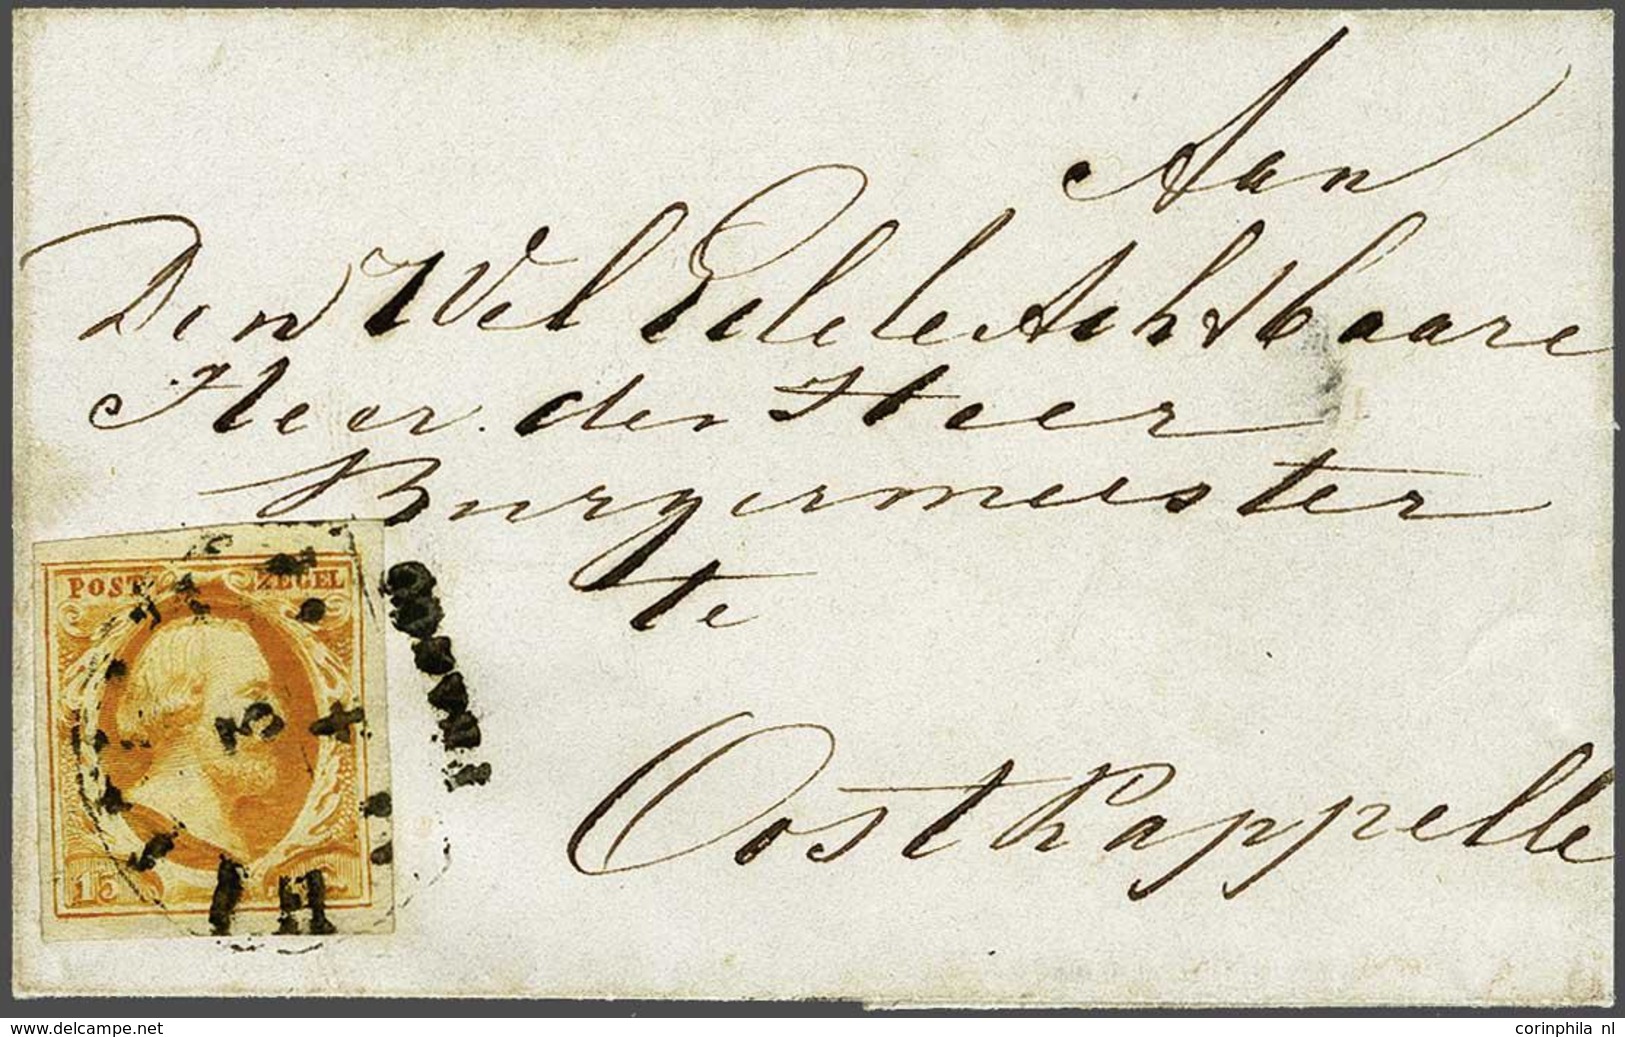 Aan
Den Wel Edele Achtbaare
Heer den Heer
Burgermeester
te
Oostkappelle
POST ZEGEL
3
15
www.delcampe.net
corinphila nl